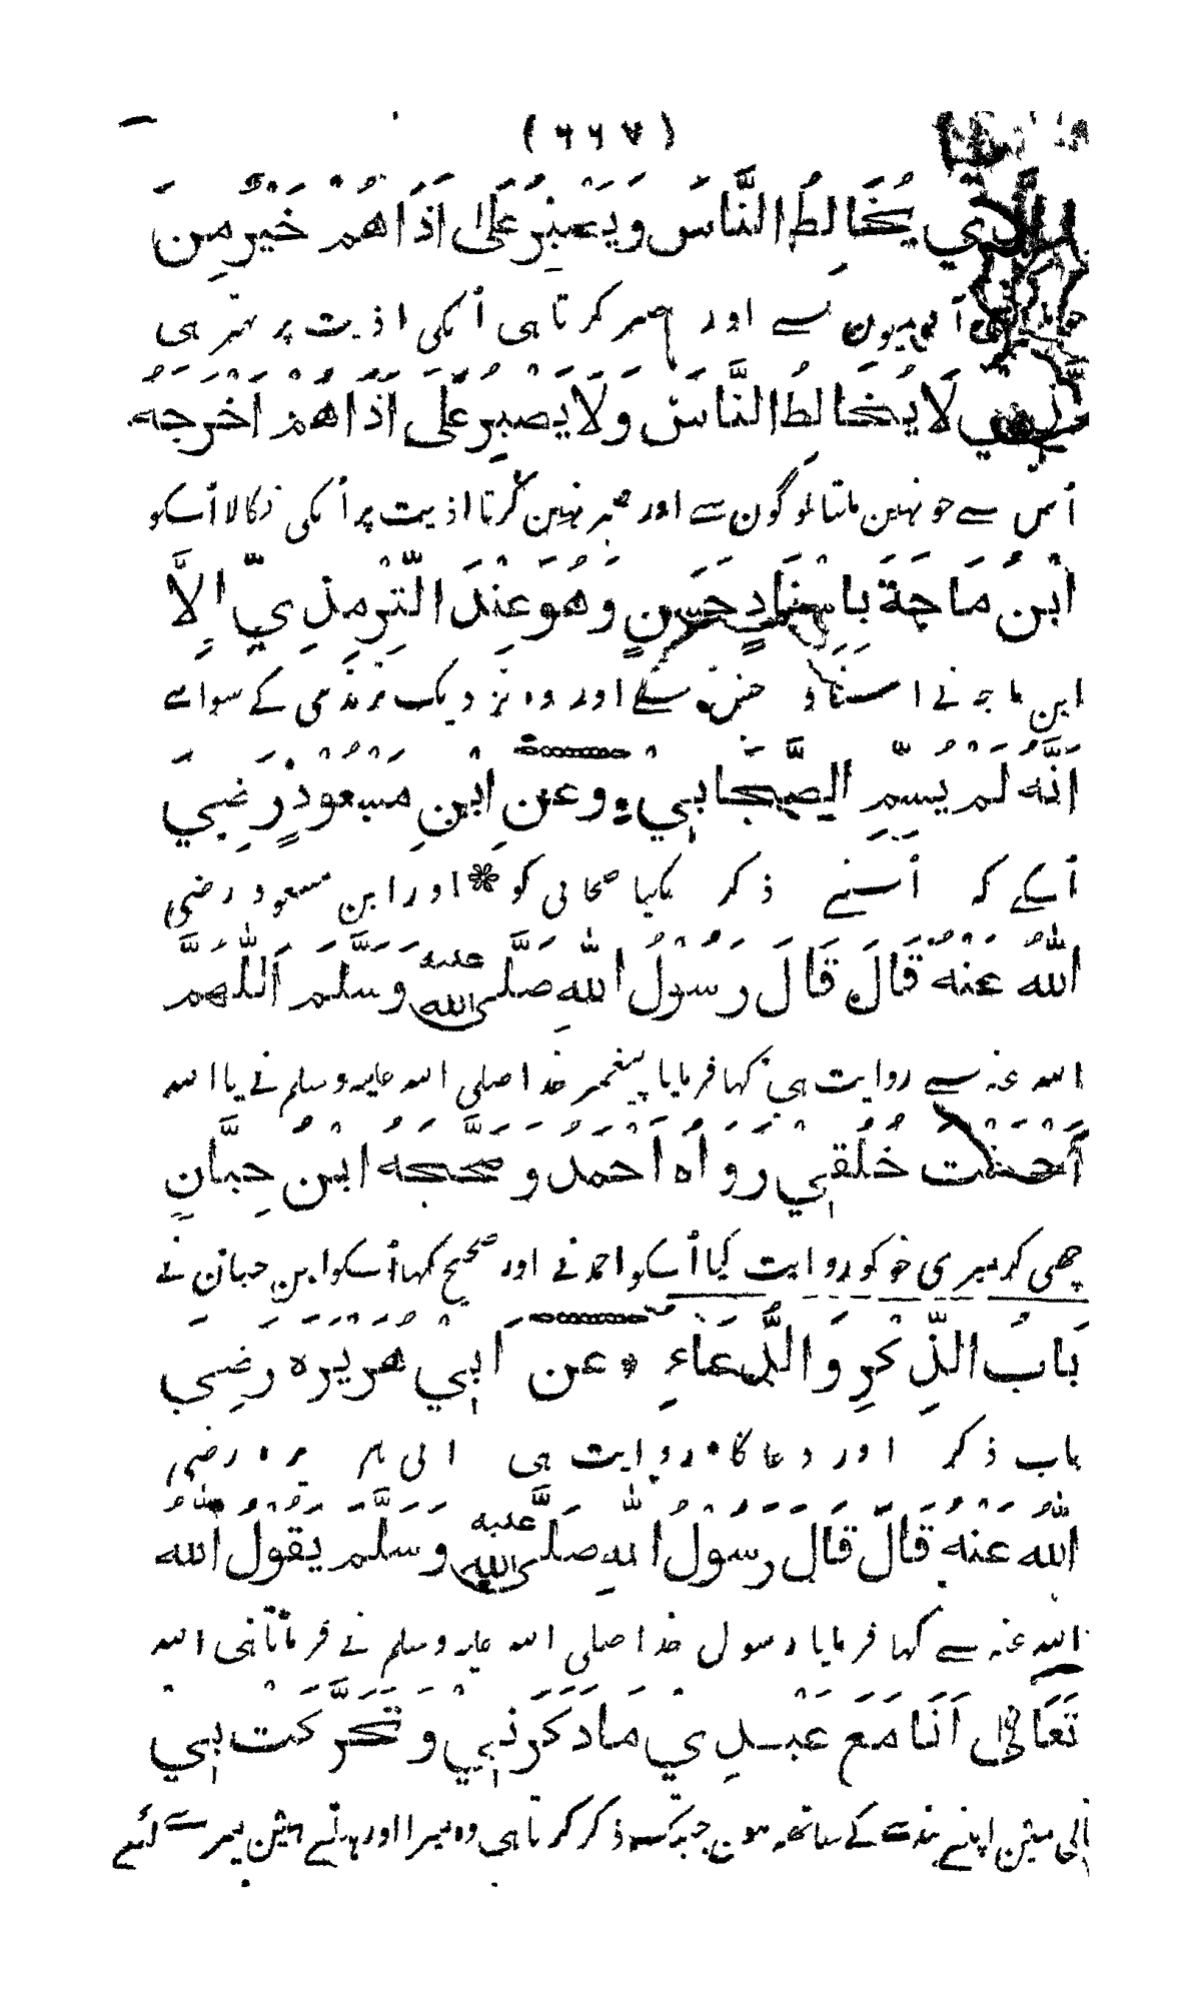 (٦٦٧)
الَّذِي يُخَالِطُ النَّاسَ وَيَصْبِرُ عَلَى اَذَاهُمْ خَيْرٌ مِنَ
آدمیون سے اور صبر کرتا ہی اُنکی اذیت پر بہتر ہی
الَّذِي لَا يُخَالِطُ النَّاسَ وَلَا يَصْبِرُ عَلَى اَذَاهُمْ اَخْرَجَهُ
اُس سے جو نہین ملتا لوگون سے اور صبر نہین کرتا اذیت پر اُنکی نکالا اُسکو
ابْنُ مَاجَةَ بِاِسْنَادٍ حَسَنٍ وَهُوَ عِنْدَ التِّرْمِذِيِّ اِلَّا
ابن ماجہ نے اسناد حسن سے اور وہ نزدیک ترمذی کے سواے
اَنَّهُ لَمْ يُسَمِّ الصَّحَابِيَّ وَعَنِ ابْنِ مَسْعُوْدٍ رَضِيَ
اُسکے کہ اُسنے ذکر کیا صحابی کو * اور ابن مسعود رضی
اللّٰهُ عَنْهُ قَالَ قَالَ رَسُوْلُ اللّٰهِ صَلَّى اللّٰه عليه وَسَلَّمَ اَللّٰهُمَّ
اللہ عنہ سے روایت ہی کہا فرمایا پیغمبر خدا صلی اللہ علیہ وسلم نے یا اللہ
اَحْسَنْتَ خُلُقِي رَوَاهُ اَحْمَدُ وَصَحَّحَهُ ابْنُ حِبَّانٍ
اچھی کر میری خو کو روایت کیا اُسکو احمد نے اور صحیح کہا اُسکو ابن حبان نے
بَابُ الذِّكْرِ وَالدُّعَاءِ * عَنْ اَبِيْ هُرَيْرَه رَضِيَ
باب ذکر اور دعا کا * روایت ہی ابی ہریرہ رضی
اللّٰهُ عَنْهُ قَالَ قَالَ رَسُوْلُ اللّٰهِ صَلَّى اللّٰه عليه وَسَلَّمَ يَقُوْلُ اللّٰهُ
اللہ عنہ سے کہا فرمایا رسول خدا صلی اللہ علیہ وسلم نے فرماتا ہی اللہ
تَعَالٰى اَنَا مَعَ عَبْدِي مَا ذَكَرَنِي وَتَحَرَّكَتْ بِي
الی مین اپنے بندے کے ساتھ ہون جبکہ ذکر کرتا ہی وہ میرا اور ہلتے ہین میرے لئے